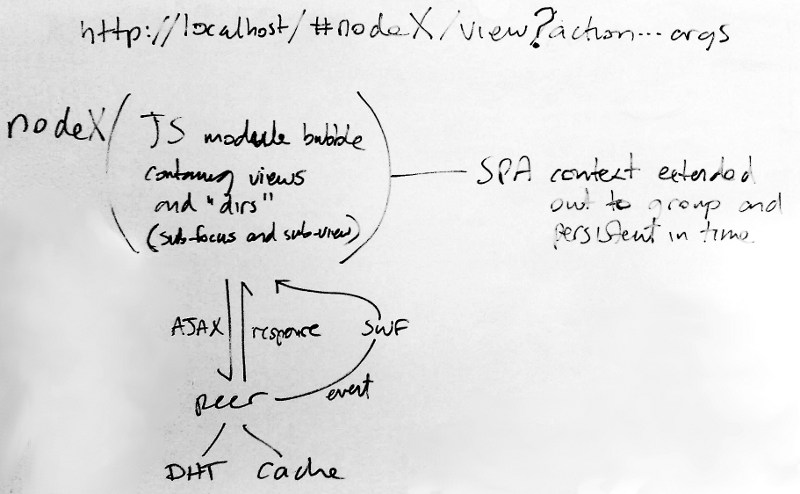 http://localhost/#nodeX/view?action...args
nodeX/
JS module bubble
containing views
and "dirs"
(sub-focus and sub-view)
SPA context extended
out to group and
persistent in time
AJAX
response
SWF
peer
event
DHT
Cache